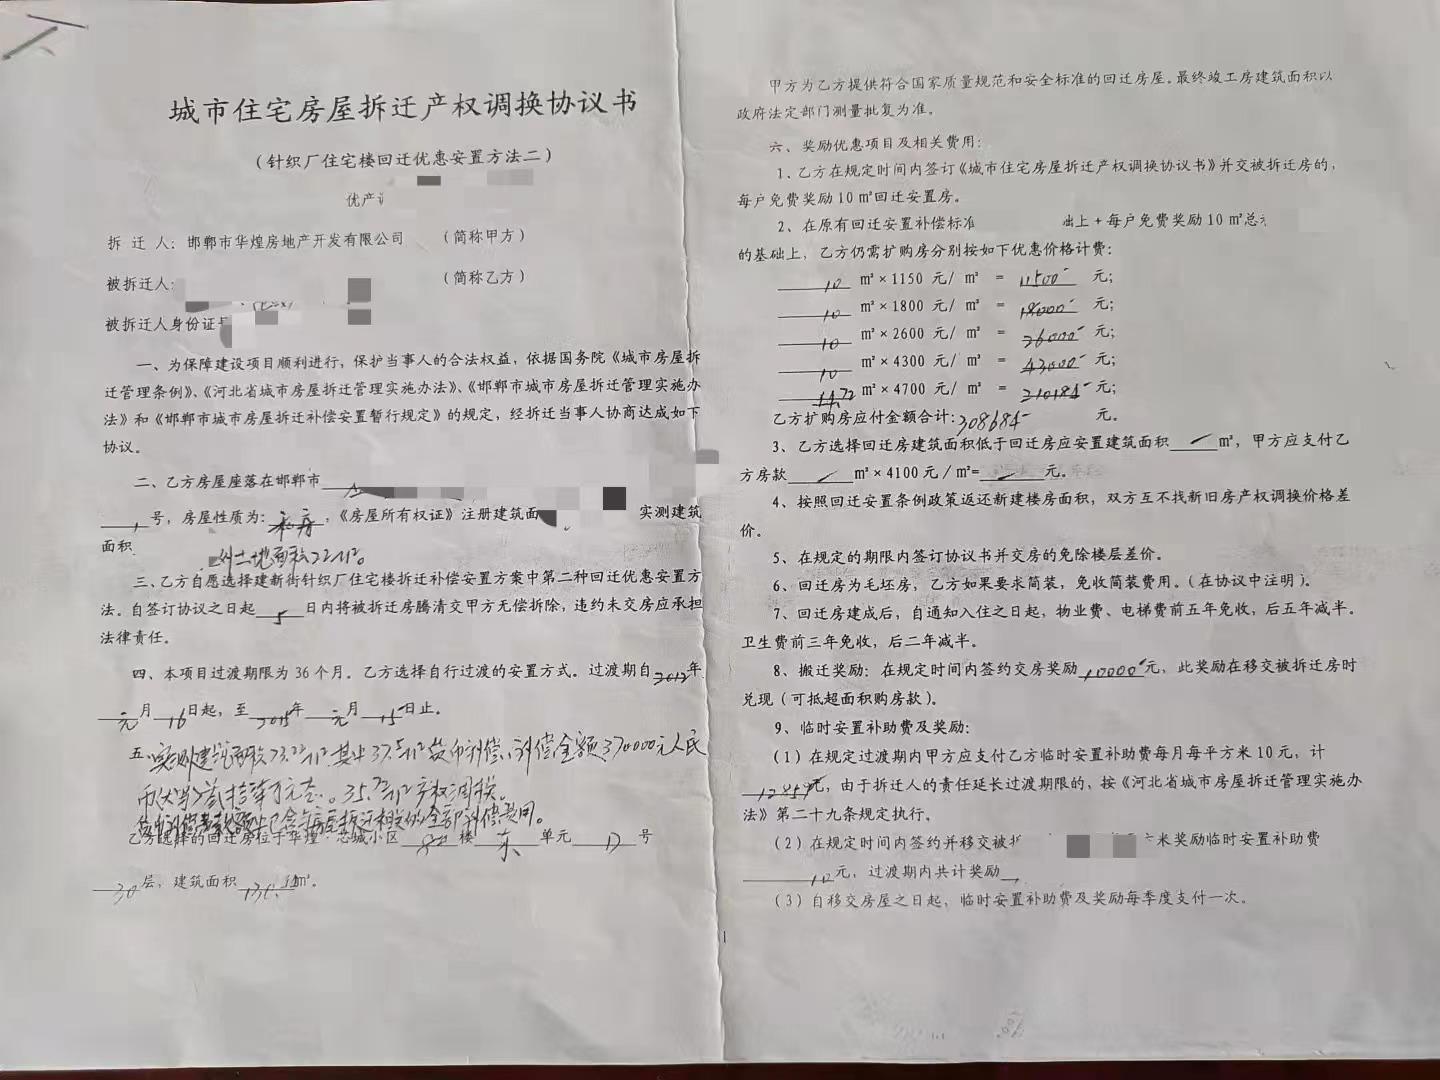 城市住宅房屋拆迁产权调换协议书
（针织厂住宅楼回迁优惠安置方法二）
优产
拆 迁 人：邯郸市华煌房地产开发有限公司 （简称甲方）
被拆迁人： （简称乙方）
被拆迁人身份证号
一、为保障建设项目顺利进行，保护当事人的合法权益，依据国务院《城市房屋拆
迁管理条例》、《河北省城市房屋拆迁管理实施办法》、《邯郸市城市房屋拆迁管理实施办
法》和《邯郸市城市房屋拆迁补偿安置暂行规定》的规定，经拆迁当事人协商达成如下
协议。
二、乙方房屋座落在邯郸市
1 号，房屋性质为：私产，《房屋所有权证》注册建筑面 实测建筑
面积
土地面积
三、乙方自愿选择建新街针织厂住宅楼拆迁补偿安置方案中第二种回迁优惠安置方
法。自签订协议之日起 5 日内将被拆迁房腾清交甲方无偿拆除，违约未交房应承担
法律责任。
四、本项目过渡期限为 36 个月。乙方选择自行过渡的安置方式。过渡期自 2012 年
元 月 16 日起，至 2015 年 元 月 15 日止。
五、实测建筑面积73.22㎡其中37.5㎡货币补偿，补偿金额370000元人民
币(大写)叁拾柒万元整。35.72㎡产权调换。
与房屋拆迁相关的全部补偿费用。
乙方选择的回迁房位于华煌·芯城小区 楼 东 单元 号
30 层，建筑面积 ㎡。
甲方为乙方提供符合国家质量规范和安全标准的回迁房屋。最终竣工房建筑面积以
政府法定部门测量批复为准。
六、奖励优惠项目及相关费用：
1、乙方在规定时间内签订《城市住宅房屋拆迁产权调换协议书》并交被拆迁房的，
每户免费奖励 10 ㎡回迁安置房。
2、在原有回迁安置补偿标准 础上＋每户免费奖励 10 ㎡总
的基础上，乙方仍需扩购房分别按如下优惠价格计费：
10 ㎡×1150 元/ ㎡ = 11500 元；
10 ㎡×1800 元/ ㎡ = 18000 元；
10 ㎡×2600 元/ ㎡ = 26000 元；
10 ㎡×4300 元/ ㎡ = 43000 元；
44.72 ㎡×4700 元/ ㎡ = 210184 元；
乙方扩购房应付金额合计：308684 元。
3、乙方选择回迁房建筑面积低于回迁房应安置建筑面积 ㎡，甲方应支付乙
方房款 ㎡×4100 元/㎡= 元。
4、按照回迁安置条例政策返还新建楼房面积，双方互不找新旧房产权调换价格差
价。
5、在规定的期限内签订协议书并交房的免除楼层差价。
6、回迁房为毛坯房，乙方如果要求简装，免收简装费用。（在协议中注明）。
7、回迁房建成后，自通知入住之日起，物业费、电梯费前五年免收，后五年减半。
卫生费前三年免收，后二年减半。
8、搬迁奖励：在规定时间内签约交房奖励 10000 元，此奖励在移交被拆迁房时
兑现（可抵超面积购房款）。
9、临时安置补助费及奖励：
（1）在规定过渡期内甲方应支付乙方临时安置补助费每月每平方米 10 元，计
12859 元，由于拆迁人的责任延长过渡期限的，按《河北省城市房屋拆迁管理实施办
法》第二十九条规定执行。
（2）在规定时间内签约并移交被拆 米奖励临时安置补助费
10 元，过渡期内共计奖励
（3）自移交房屋之日起，临时安置补助费及奖励每季度支付一次。
1